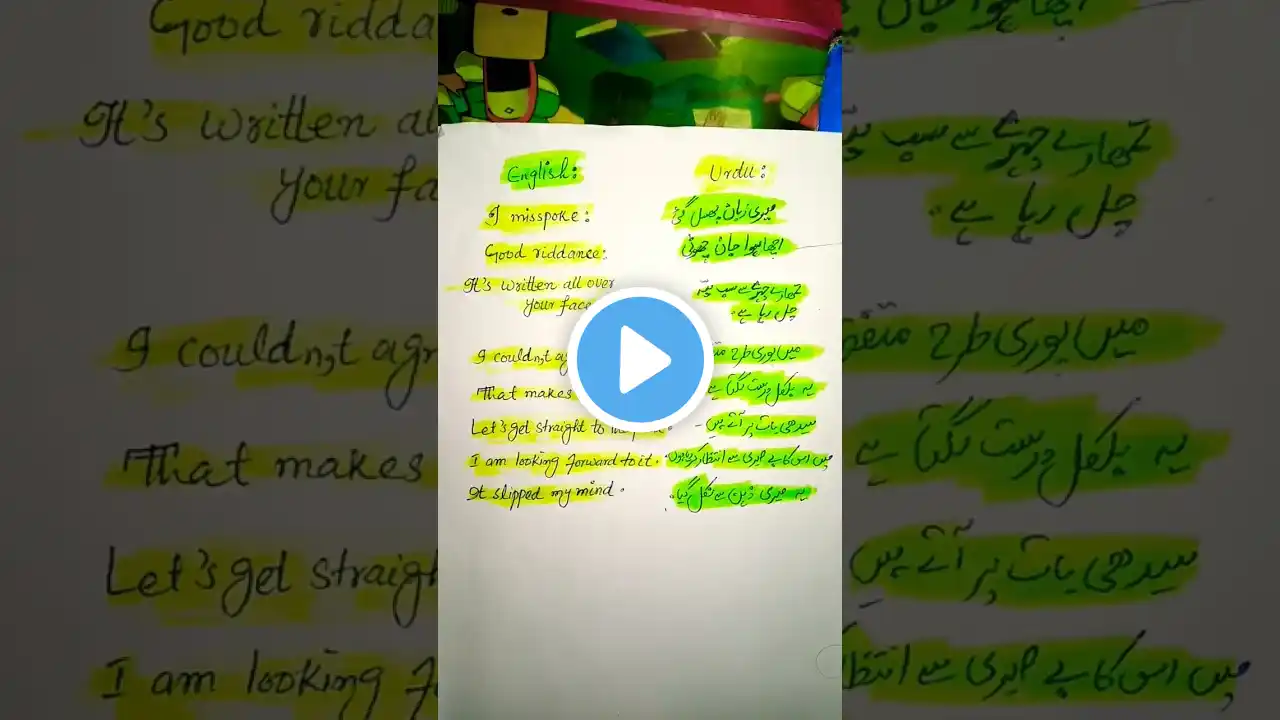 English: Urdu:
I misspoke: میری زبان پھسل گئی
Good riddance: اچھا ہوا جان چھوٹی
It's written all over تمھارے چہرے سے سب پتہ
your face چل رہا ہے.
I couldn,t میں پوری طرح
That makes یہ بلکل درست لگتا ہے
Let's get straight to سیدھی بات پر آتے ہیں
I am looking forward to it. میں اس کا بے صبری سے انتظار کر رہا ہوں.
It slipped my mind. یہ میری ذہن سے نکل گیا.